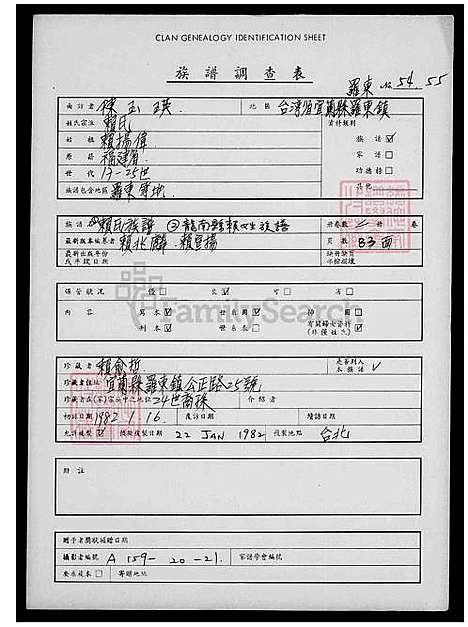 CLAN GENEALOGY IDENTIFICATION SHEET
族譜調查表
羅東 No. 54. 55
面訪者 陳玉瑛 地區 台灣省宜蘭縣羅東鎮
姓氏宗位 賴氏 資料類別
始祖 賴揚偉 族譜 ☑
原籍 福建省 家譜 □
世代 17-25世 功德榜 □
族譜包含地區 羅東等地 其他
族譜 ①賴氏族譜 ②龍南縣賴姓族譜 冊卷數 冊 卷
最新版本編纂者 賴兆麟. 賴聖揚 頁數 83面
最新出版年份 缺冊缺頁
或年號日期
保管狀況 優 □ 良 ☑ 可 □ 有 □
內容 寫本 ☑ 世系圖 ☑ 傳序 □
刊本 ☑ 世系表 □ 有關婦女資料 (非僅姓氏) ☑
FamilySearch
珍藏者 賴俞哲 是否列入本族譜 ✓
珍藏者住址 宜蘭縣羅東鎮公正路25號
珍藏者在(家)宗公中之地位 24世裔孫 介紹者
初訪日期 1982. 1. 16. 複訪日期 續訪日期
允許複製 ☑ 複製日期 22 JAN 1982 複製地點 台北
附註
贈予者獎狀頒贈日期
攝影者編號 A 159- 20 -21. 家譜學會編號
要求複本 □ 寄贈地址